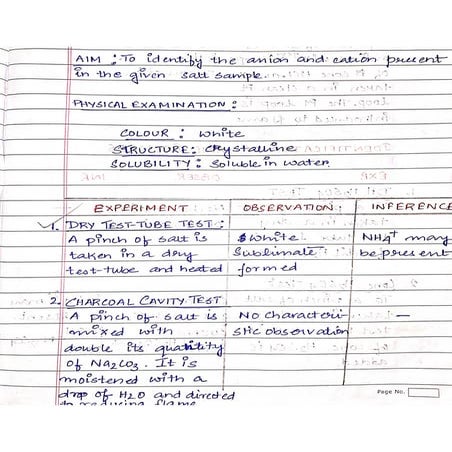 AIM : To identify the anion and cation present
in the given salt sample.
PHYSICAL EXAMINATION :
COLOUR : White
STRUCTURE : Crystalline
SOLUBILITY : Soluble in water
EXPERIMENT OBSERVATION : INFERENCE
1. DRY TEST-TUBE TEST :
A pinch of salt is White NH4+ may
taken in a dry Sublimate be present
test-tube and heated formed
2. CHARCOAL CAVITY TEST
A pinch of salt is No characteri- —
mixed with stic observation
double its quantity
of Na2CO3. It is
moistened with a
drop of H2O and directed
to reducing flame
Page No.